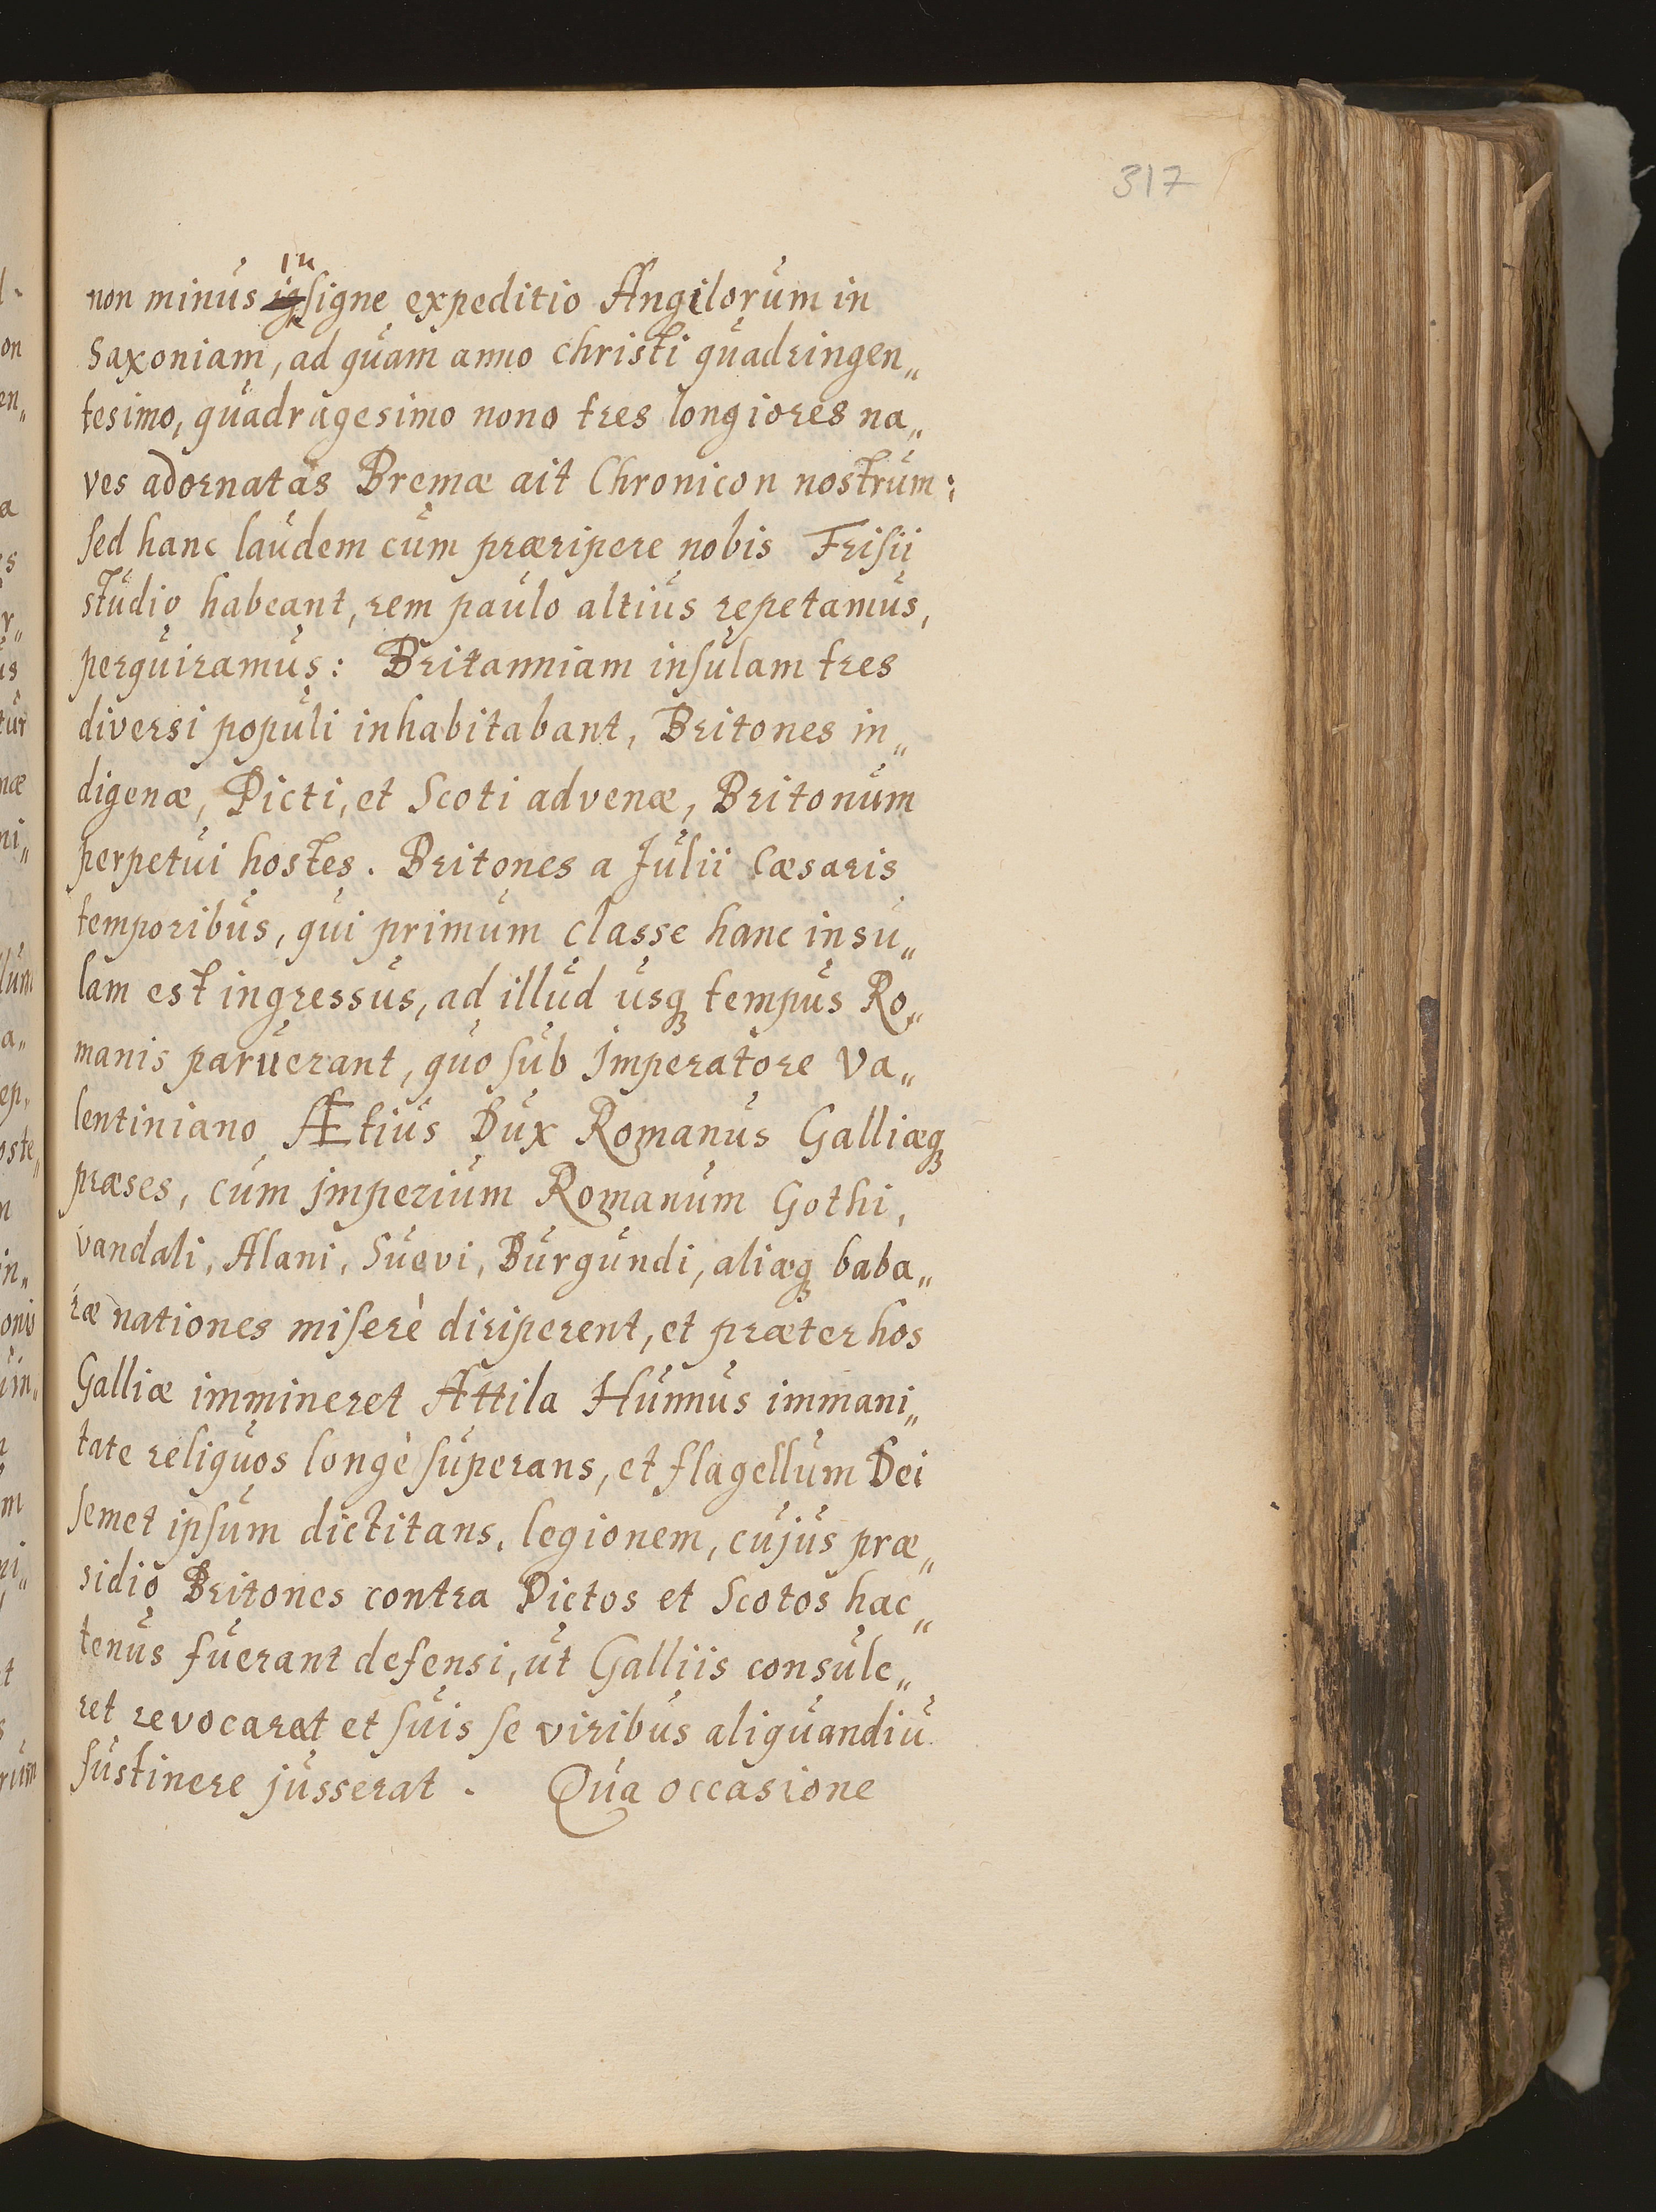 317
non minus insigne expeditio Angilorum in
Saxoniam, ad quam anno Christi quadringen„
tesimo, quadragesimo nono tres longiores na„
ves adornatas Bremæ ait Chronicon nostrum:
sed hanc laudem cum præripere nobis Frisii
studio habeant, rem paulo altius repetamus,
perquiramus: Britanniam insulam tres
diversi populi inhabitabant, Britones in„
digenæ, Picti, et Scoti advenæ, Britonum
perpetui hostes. Britones a Julii Cæsaris
temporibus, qui primum classe hanc insu„
lam est ingressus, ad illud usq; tempus Ro„
manis paruerant, quo sub Imperatore Va„
lentiniano Ætius Dux Romanus Galliæq;
præses, cum imperium Romanum Gothi,
Vandali, Alani, Suevi, Burgundi, aliæq; baba„
ræ nationes miserè diriperent, et præter hos
Galliæ immineret Attila Hunnus immani„
tate reliquos longè superans, et flagellum Dei
semet ipsum dictitans, legionem, cujus præ„
sidio Britones contra Pictos et Scotos hac„
tenus fuerant defensi, ut Galliis consule„
ret revocaret et suis se viribus aliquandiu
sustinere jusserat. Qua occasione